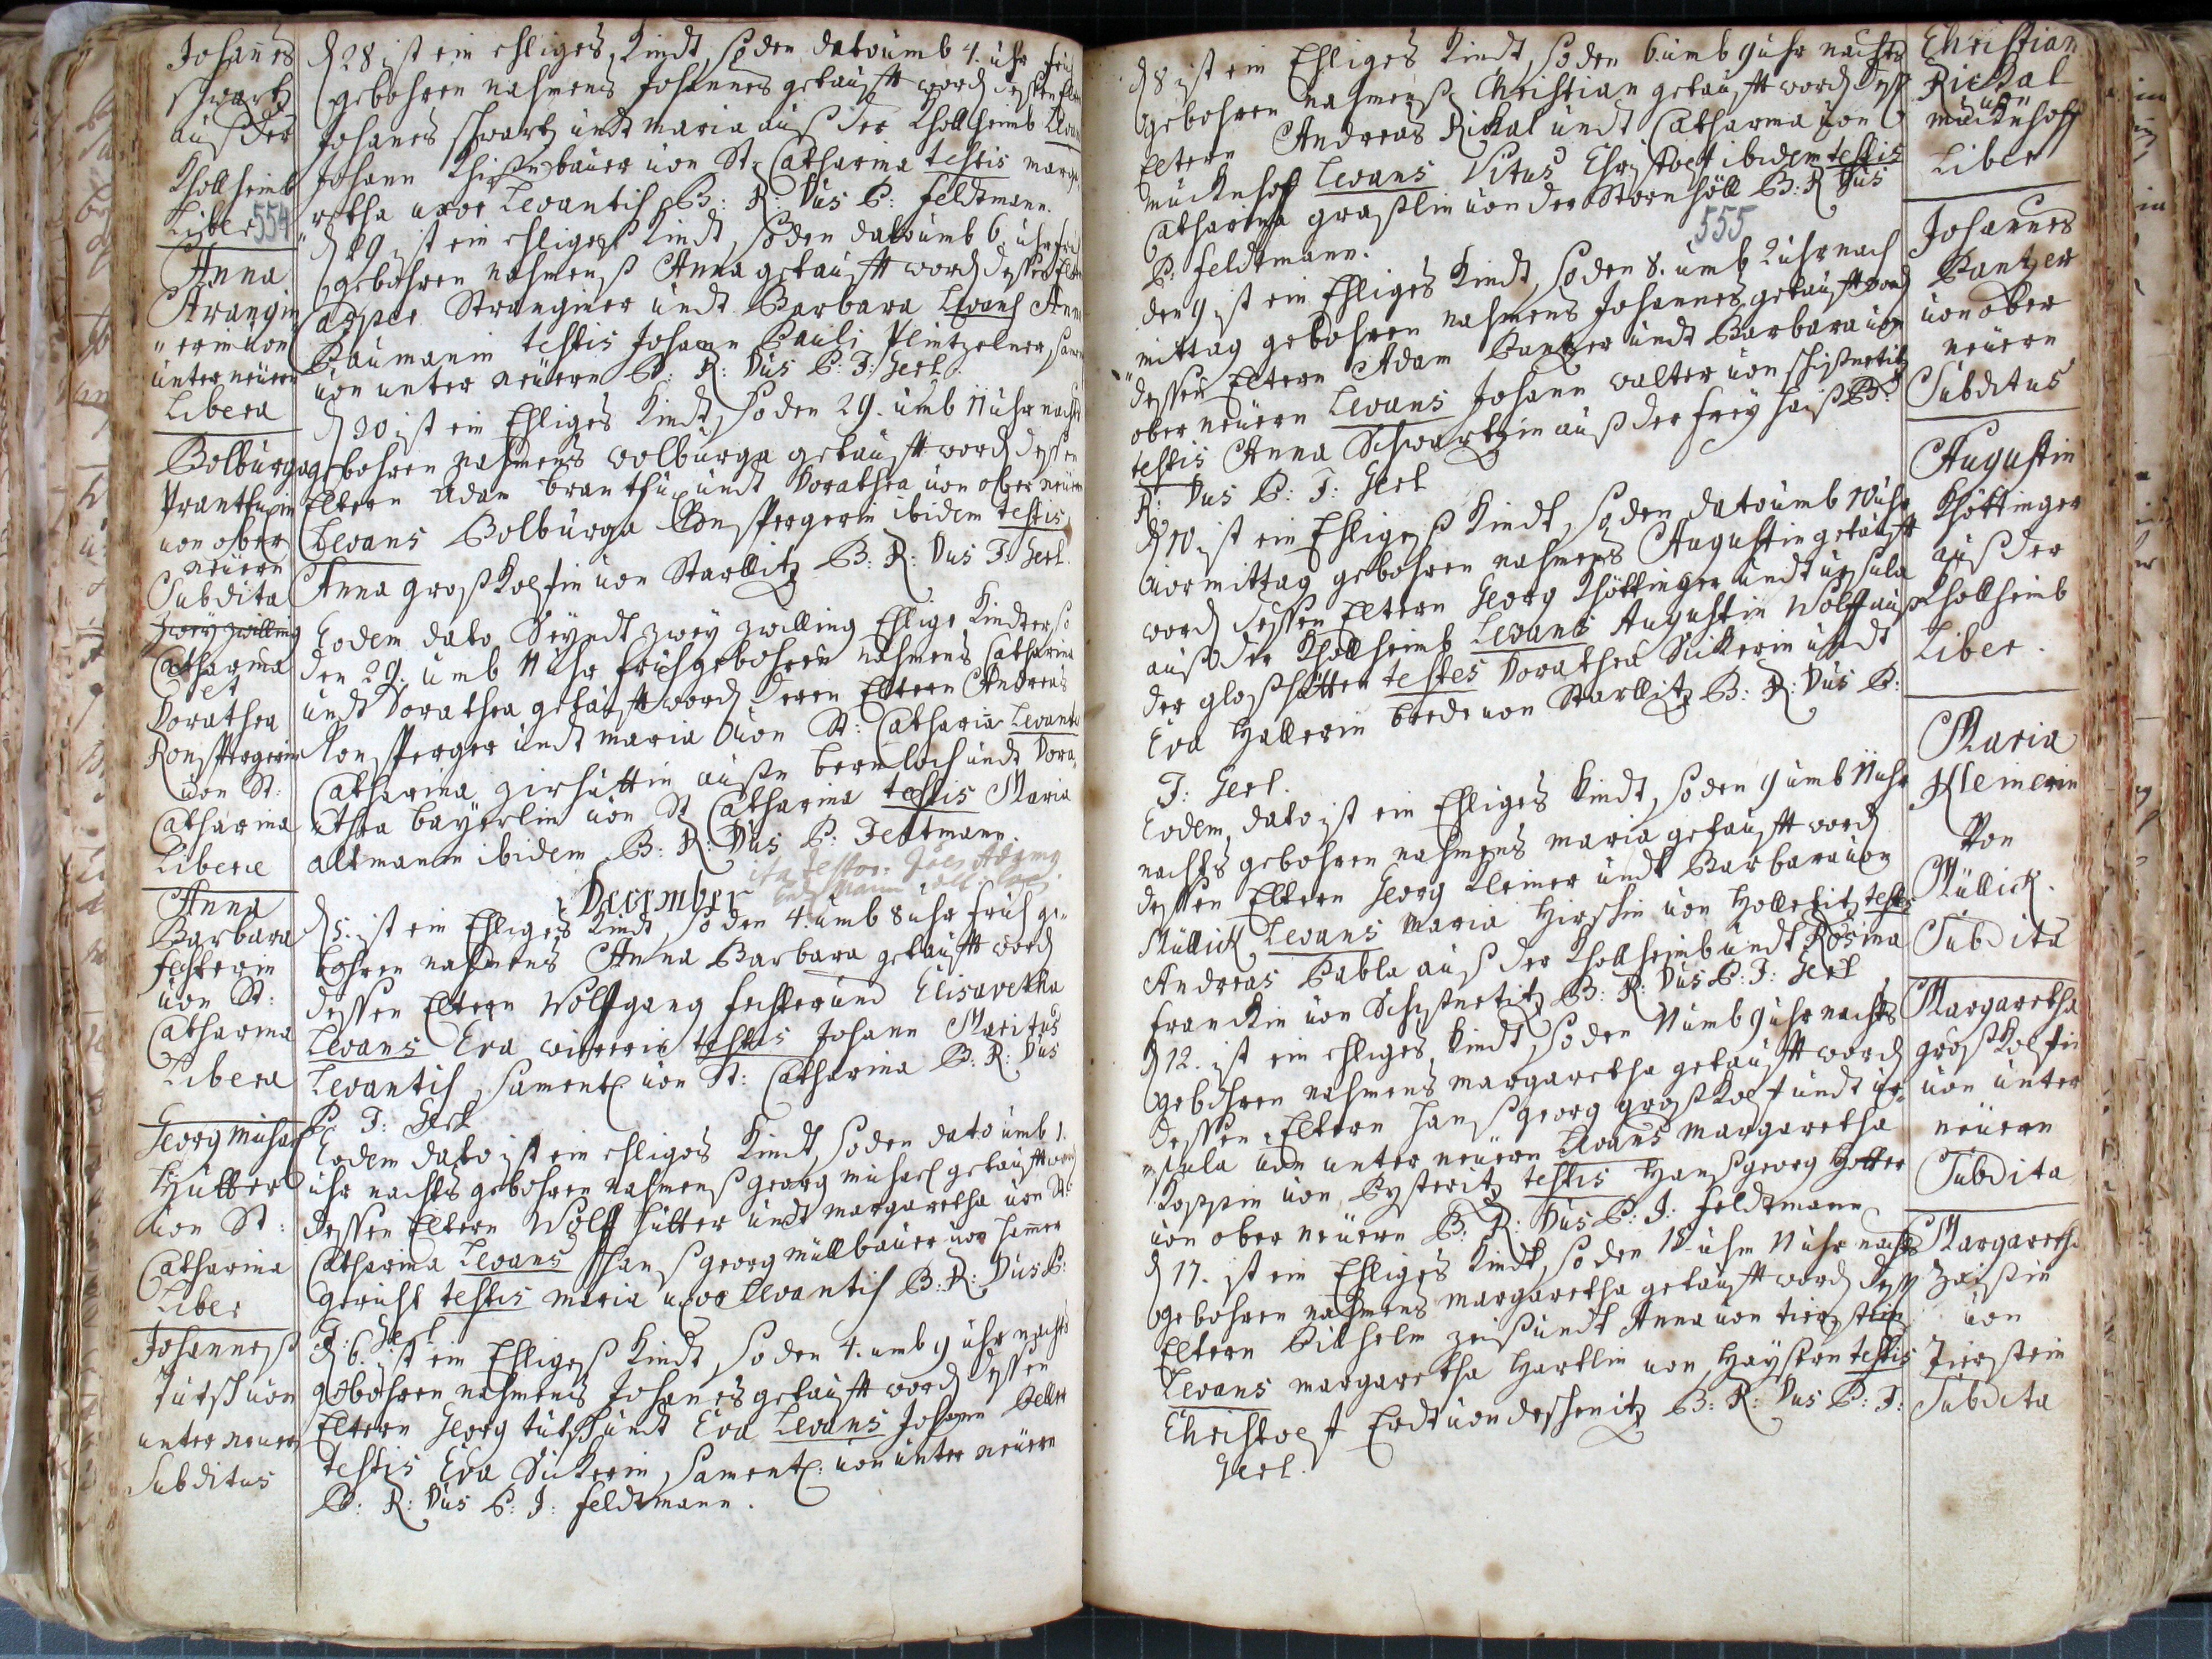 Johanes
schwartz
auß der
Khollheimb
Liber 554
d 28 ist ein ehliges Kindt, so den dato umb 4. uhr früh
gebohren nahmens Johannes getaufft word dessen
Johanes schwartz undt Maria auß der Khollheimb Levans
Johann bauer von St: Catharina testis marga„
retha uxor Levantis B: R: Dus P: Feldtmann.
Anna
Strangin„
erin von
unter neüern
Libera
d 29 ist ein ehliges Kindt, so den dato umb 6. uhr früh
gebohren nahmenß Anna getaufft word dessen Eltern
Casper Stranginer undt Barbara Levans Anna
Baumanin testis Johann Pauli
von unter neüern B: R: Dus P: J: Gerl.
Bolburga
von ober
neüern
Subdita
d 30 ist ein Ehliges Kindt, so den 29. umb 11 uhr nachts
gebohren nahmens wolburga getaufft word dessen
Eltern Adam undt Dorathea von ober neüern
Levans Bolburga Konspergerin ibidem testis
Anna großkolfin von Starlitz B: R: Dus J: Gerl.
zwey zwilling
Catharina
et
Dorathea
Konspergerin
von St:
Catharina
Liberæ
Eodem dato Seyndt zwey zwilling Ehlige Kindter, so
den 29. umb 11 uhr früh gebohren nahmens Catharina
undt Dorathea getaufft word deren Eltern Andreas
Konsperger undt maria von St: Catharia Levantes
Catharina außn bernloch undt Dora„
thea bayerlin von St Catharina testis Maria
altmanin ibidem B: R: Dus P: Feltmann.
December
Anna
Barbara
fechterin
von St:
Catharina
Libera
d 5. ist ein Ehliges Kindt, so den 4. umb 8 uhr früh ge„
bohren nahmens Anna Barbara getaufft word
dessen Eltern Wolffgang fechter und Elisavetha
Levans Eva testis Johann Maritus
Levantis, sament von St: Catharina B: R: Dus
P: J: Gerl
Georg michael
Hütter
von St:
Catharina
Liber
Eodem dato ist ein ehliges Kindt, so den dato umb 1.
uhr nachts gebohren nahmenß georg michael getaufft word
dessen Eltern Wolff hütter undt margaretha von St:
Catharina Levans Hanß georg Müllbauer von hamer
gericht testis maria uxor Levantis B: R: Dus P:
J: Gerl
Johanneß
tutsch von
unter neuern
Subditus
d 6. ist ein Ehligeß Kindt, so den 4. umb 9 uhr nachts
gebohren nahmens Johanes getaufft word dessen
Eltern Georg tutsch undt Eva Levans Johann
testis Eva Sückerin, sament: von unter neüern
B: R: Dus P: J: feldtmann.
d 8 ist ein Ehliges Kindt, so den 6. umb 9 uhr nachts
gebohren nahmenß Christian getaufft word dess
Eltern Andreas Rickal undt Catharina von
mücknhoff Levans Vitus Christoph ibidem testis
Catharina graßlin von der Stornhöll B: R Dus
P: feldtmann.
555
Christian
Rickal
von
mücknhoff
Liber
den 9 ist ein Ehliges Kindt, so den 8. umb 2 uhr nach„
mittag gebohren nahmens Johannes getaufft word
dessen Eltern Adam Pantzer undt Barbara von
ober neüern Levans Johann walter von
testis Anna Schwartzin auß der frey haiß B:
R: Dus P: J: Gerl
Johannes
Pantzer
von ober
neüern
Subditus
d 10 ist ein Ehligeß Kindt, so den dato umb 10 uhr
vormittag gebohren nahmens Augustin getaufft
word dessen Eltern Georg Khöttinger undt ursula
auß der Khollheimb Levans Augustin Wolff auß
der gloßhütten testes Dorathea Sickerin undt
Eva Hallerin bede von Starlitz B: R: Dus P:
J: Gerl.
Augustin
Khöttinger
auß der
Khollheimb
Liber.
Eodem dato ist ein Ehliges Kindt, so den 9 umb 11 uhr
nachts gebohren nahmens maria getaufft word
dessen Eltern Georg Kleiner undt Barbara von
Müllick Levans Maria Hirschin von Holletitz testes
Andreas Pabla auß der Khollheimb undt Rosina
Franckin von B: R: Dus P: J: Gerl
Maria
Kleinerin
Von
Müllick.
Subdita
d 12. ist ein ehliges Kindt, so den 11 umb 9 uhr nachts
gebohren nahmens margaretha getaufft word
dessen Eltern Hanßgeorg großkolf undt ur„
„sula von unter neüern Levans Margaretha
von testis Hanßgeorg
von ober neüern B: R: Dus P: J: Feldtmann
Margaretha
großkolfin
von unter
neüern
Subdita
d 17. ist ein Ehliges Kindt, so den 15 uhm 11 uhr nachts
gebohren nahmens margaretha getaufft word dess
Eltern Bilhelm zeiß undt Anna von
Levans margaretha Hartlin von Haystern testis
Christoph Erdt von deschenitz B: R: Dus P: J:
Gerl.
Margaretha
zeißin
von
Subdita